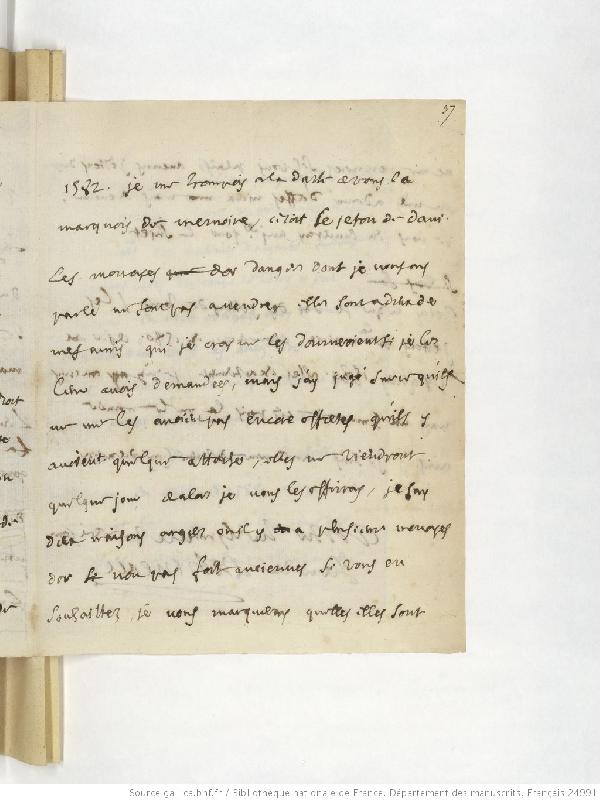 37
1582. je me trompois a la datte avons la
marquois de memoire, cetoit le jeton de davi.
Les monoyes dor dangier dont je vous ay
parlé ne sont pas a vendre, elles sont a de
mes amis qui je croy me les donneroient si je les
leur avois demandées, mais jay jugé sur ce quils
ne me les avoient pas encore offertes quils y
avoient quelque attache, elles me viendront
quelque jour a alors je vous les offriray, je say
deux maisons angier ou il y a plusieurs monoyes
dor et non pas fort anciennes si vous en
souhaittez, je vous marqueray quelles elles sont
roit
Source gallica.bnf.fr / Bibliothèque nationale de France. Département des manuscrits. Français 24991